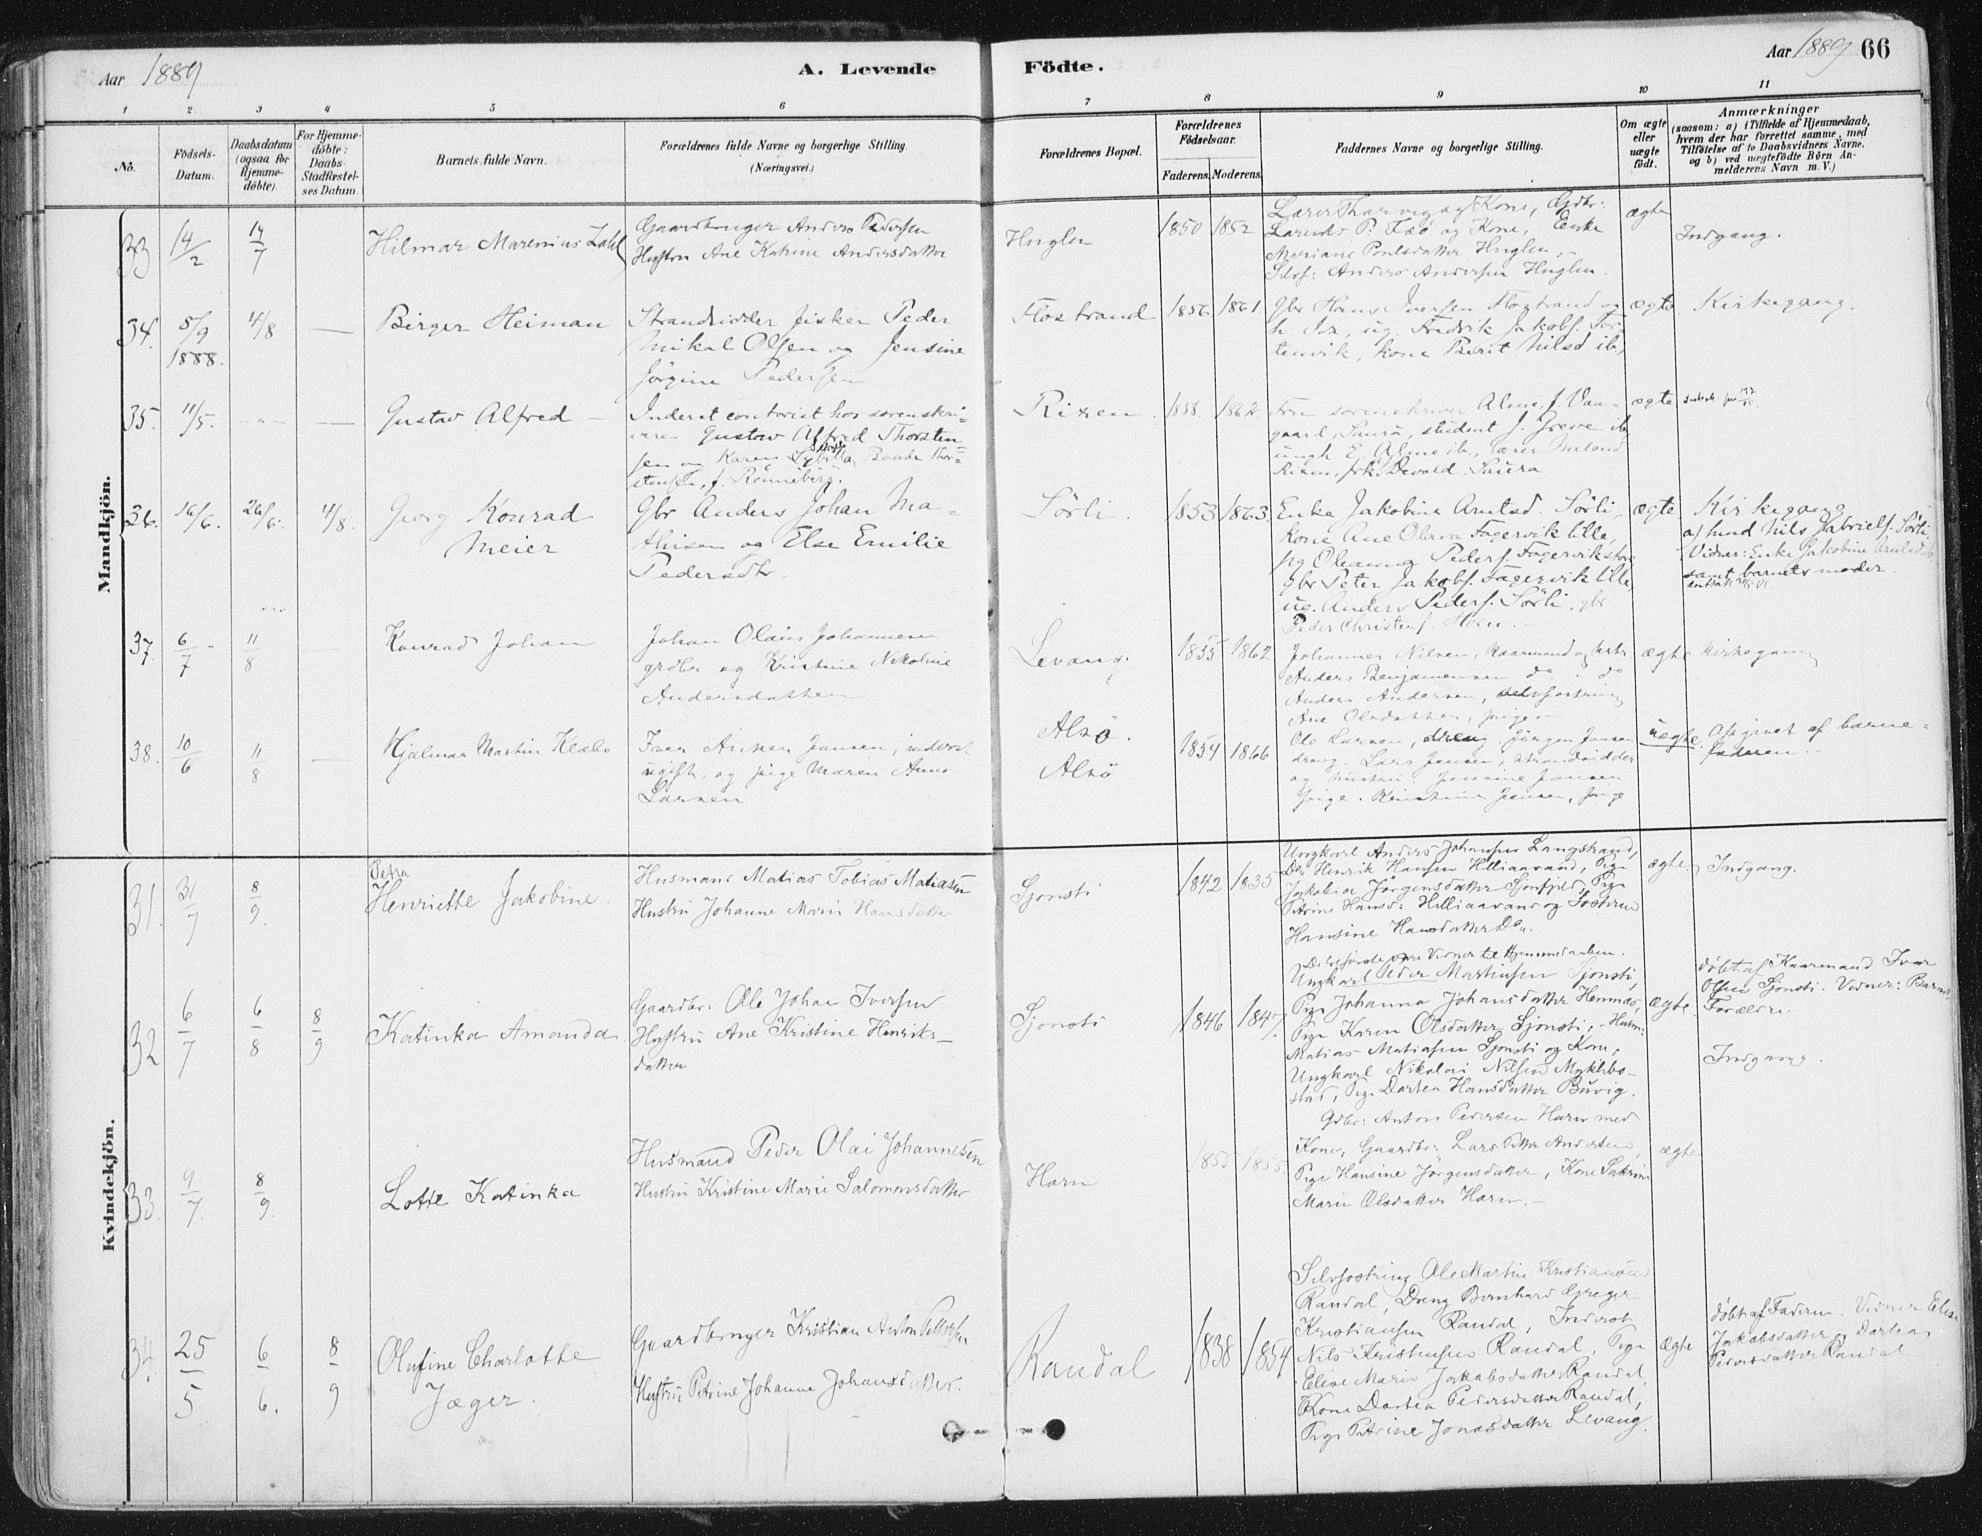 Aar 1889
A. Levende
Födte.
Aar 1889 66
1 2 3 4 5 6 7 8 9 10 11
No.
Födsels-
Datum.
Daabsdatum
(ogsaa for
Hjemme-
döbte).
For Hjemme-
döbte:
Daabs-
Stadfæstel-
ses Datum.
Barnets fulde Navn.
Forældrenes fulde Navne og borgerlige Stilling.
(Næringsvei.)
Forældrenes Bopæl.
Forældrenes
Födselsaar.
Faderens. Moderens.
Faddernes Navne og borgerlige Stilling.
Om ægte
eller
uægte
födt.
Anmærkninger
(saasom: a) i Tilfælde af Hjemmedaab,
hvem der har forrettet samme, med
Tilföielse af to Daabsvidners Navne,
og b) ved uægtefödte Börn An-
melderens Navn m. V.)
Mandkjön.
33 14/2 14/7
Hilmar Marenius Zahl
Gaardbruger Anders Pedersen
Hustru Ane Katrine Andersdatter
Huglen
1850 1852
og Kone, Gdbr:
og Kone, Enke
Mariane Poulsdatter Huglen,
Anders Andersen Huglen.
ægte
Indgang.
34. 5/9 4/8 —
1888.
Birger Heiman
Strandsidder fisker Peder
Mikal Olsen og Jensine
Jörgine Pedersen
Flostrand
1856 1861.
Gbr Hans Iversen Flostrand og
ug. Fredrik Jakobs.
kone Berit Nilsd ib.
ægte
Kirkegang.
35. 11/5. -"- —
Gustav Alfred —
Inderst contorist hos sorenskri-
veren Gustav Alfred Thorsten-
sen og Karen Baade Thor-
stensen, f. Rönneberg.
Rixen.
1858. 1862.
Fru sorenskriver Alme, f.
student
E. Alme ib., lærer Meland
Rixen,
ægte
36. 16/6. 26/6. 4/8.
Georg Konrad
Meier
Gbr Anders Johan Ma-
thisen og Else Emilie
Pedersdtr.
Sörli
1853 1863.
Enke Jakobine Arntsd. Sörli,
kone Ane Olava Fagervik lille,
pg Oleanna Peders. Fagervik store
gbr Peter Jakobs. Fagervik lille,
ug. Anders Peders. Sörli, gbr
Peder Christens. Horn. —
ægte
Kirkegang
af hmd Nils Gabriels. Sörli
Vidner: Enke Jakobine Arntsd ib.
samt barnets moder.
37. 6/7 11/8 —
Konrad Johan
Johan Olaus Johannesen
grdbr og Kristine Nikoline
Andersdatter
Levang.
1855 1862
Johannes Nilsen, kaarmand og
Anders Benjaminsen do " do
Anders Andersen, selvfostring
Ane Olsdatter, pige. —
ægte
Kirkegang
38. 10/6 11/8 —
Hjalmar Martin Klæbo
Jansen, inderst
ugift, og pige Maren Anna
Larsen
Alsö.
Alsö
1854 1866
Ole Larsen, dreng. Jörgen Jansen
dreng. Lars Jensen, strandsidder
og hustru. Jensine Jansen
pige. Kristine Jensen, pige
uægte.
Opgivet af barne-
faderen. —
Kvindekjön.
31. 31/7 8/9.
Petra
Henriette Jakobine.
Husmand Matias Tobias Matiasen
Hustru Johanne Marie Hansdatter
Sjonsti
1842 1835
Ungkarl Anders Johansen Langstrand,
Do Henrik Hansen Pige
Jakobia Jörgensdatter Sjonfjeld, Pige
Petrine Hansd:
Hansine Hansdatter Do.
ægte.
Indgang.
32 6/7 6/8 8/9
Katinka Amanda.
Gaardbr: Ole Johan Iversen
Hustru Ane Kristine Henriks-
datter
Sjonsti
1846 1847.
De to første vare Vidner til Hjemmedaaben.
Ungkarl Peder Martinsen Sjonsti,
Pige Johanna Johansdatter Hemnæs,
Pige Karen Olsdatter Sjonsti, - Husm:
Matias Matiasen Sjonsti og Kone,
Ungkarl Nikolai Nilsen Myklebo-
stad, Pige Dortea Hansdatter Buvig.
ægte
döbt af Kaarmand Ivar
Olsen Sjonsti. Vidner: Barnets
Forældre.
Indgang.
33. 9/7. 8/9.
Lotte Katinka
Husmand Peder Olai Johannesen
Hustru Kristine Marie Salomonsdatter
Horn
1855 1855.
Gdbr: Anton Pedersen Horn med
Kone, Gaardbr: Lars Petter Andersen
Pige Hansine Jörgensdatter, Kone
Marie Olsdatter Horn. —
ægte
34. 25/5 6/6. 8/9
Olufine Charlotte
Jæger.
Gaardbruger Kristian Anton Pettersen
Hustru Petrine Johanna Johansdatter.
Randal
1838 1854
Selvfostring Ole Martin Kristiansen
Randal, Dreng Bernhard Greger
Kristiansen Randal, Inderst
Nils Kristensen Randal, Pige
Elise Marie Jakobsdatter Randal,
Kone Dortea Pedersdatter Randal,
Pige Petrine Jonasdatter Levang.
ægte
döbt af Faderen. Vidner Elise
Jakobsdatter og Dortea
Pedersdatter Randal